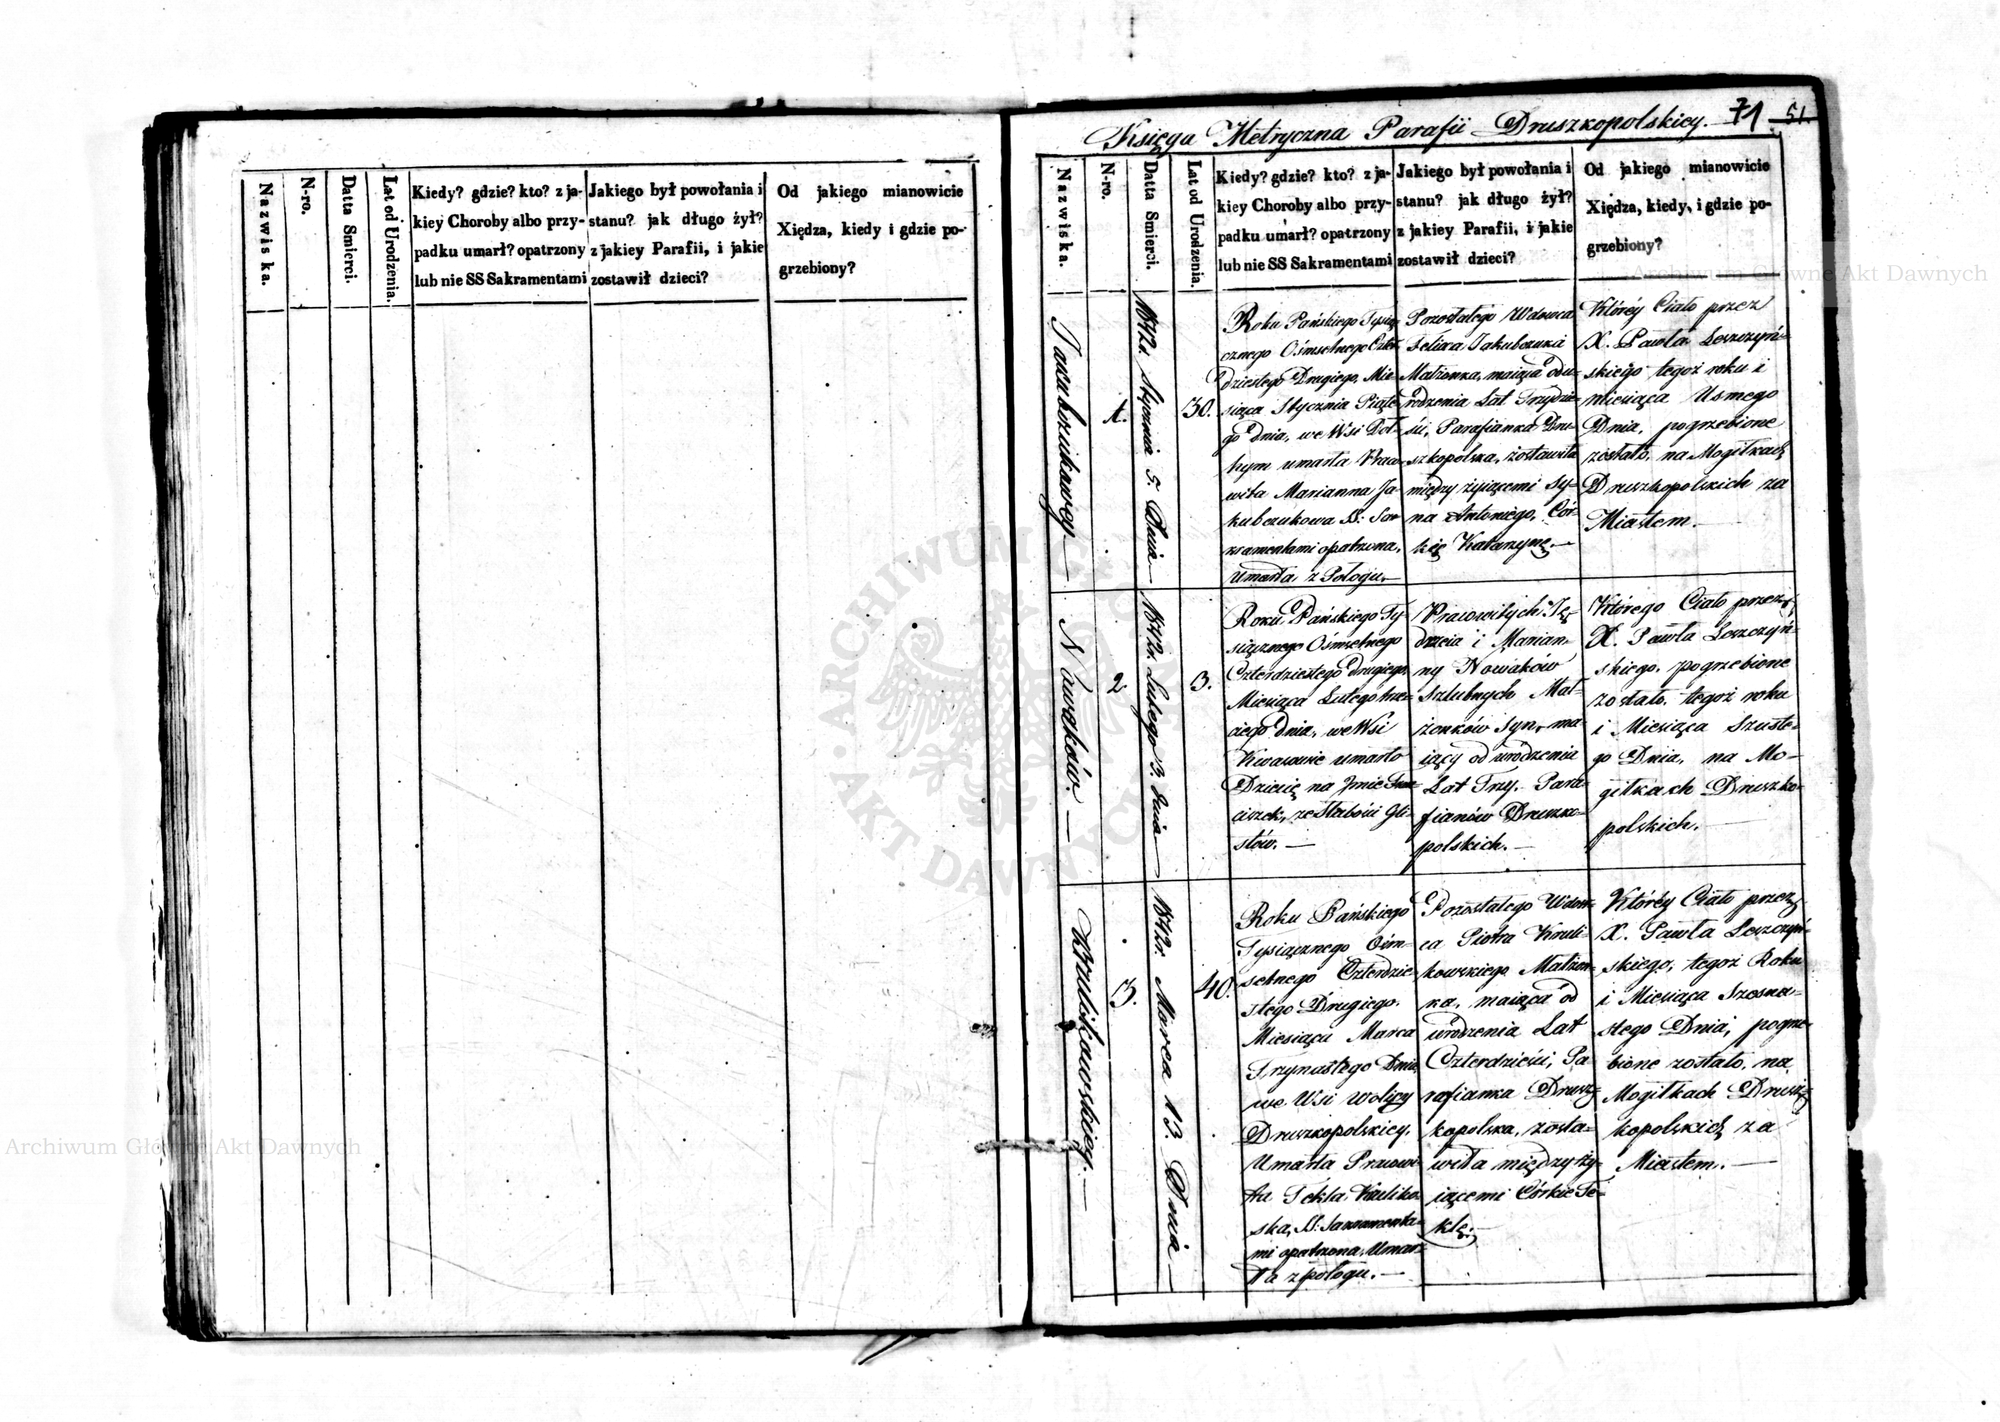 Nazwiska.
N-ro.
Datta Smierci.
Lat od Urodzenia.
Kiedy? gdzie? kto? z ja-
kiey Choroby albo przy-
padku umarł? opatrzony
lub nie SS Sakramentami
Jakiego był powołania i
stanu? jak długo żył?
z jakiey Parafii, i jakie
zostawił dzieci?
Od jakiego mianowicie
Xiędza, kiedy i gdzie po-
grzebiony?
Księga Metryczna Parafii Druszkopolskiey. 71 51.
Nazwiska.
N-ro.
Datta Smierci.
Lat od Urodzenia.
Kiedy? gdzie? kto? z ja-
kiey Choroby albo przy-
padku umarł? opatrzony
lub nie SS Sakramentami
Jakiego był powołania i
stanu? jak długo żył?
z jakiey Parafii, i jakie
zostawił dzieci?
Od jakiego mianowicie
Xiędza, kiedy, i gdzie po-
grzebiony?
1.
1842r. Stycznia 5. Dnia
30.
Roku Pańskiego Tysią-
cznego Ośmsetnego Czter-
dziestego Drugiego, Mie-
siąca Stycznia Piąte-
go dnia, we Wsi
umarła Praco-
wita Marianna Ja-
kubczukowa SS: Sa-
kramentami opatrzona,
Umarła z Połogu.
Pozostałego Wdowca
Felixa Jakubczuka
Małżonka, maiąca odu-
rodzenia Lat Trzydzie-
ści, Parafianka Dru-
szkopolska, zostawiła
między żyiącemi Sy-
na Antoniego, Cór-
kię Katarzynę.
Któréy Ciało przez
X. Pawła Leszczyń-
skiego tegoż roku i
miesiąca Usmego
Dnia, pogrzebione
zostało, na Mogiłkach
Druszkopolskich za
Miastem.
Nowaków.
2.
1842r. Lutego 3. dnia
3.
Roku Pańskiego Ty-
siącznego Ośmsetnego
Czterdziestego drugiego,
Miesiąca Lutego trze-
ciego dnia, we Wsi
Kwasowie umarło
Dziecię na Imie Fran-
ciszek, ze Słabości Gli-
stów.
Pracowitych Ję-
drzeia i Marian-
ny Nowaków
Szlubnych Mał-
żonków Syn, ma-
iący od urodzenia
Lat Trzy. Para-
fianów Druszko-
polskich.
Którego Ciało przez
X. Pawła Leszczyń-
skiego, pogrzebione
zostało, tegoż roku
i Miesiąca Szuste-
go Dnia, na Mo-
giłkach Druszko-
polskich.
Krulikowskiey.
3.
1842r. Marca 13. Dnia
40.
Roku Pańskiego
Tysiącznego Ośm-
setnego Czterdzie-
stego Drugiego,
Miesiącu Marca
Trzynastego Dnia,
we Wsi Wolicy
Druszkopolskiey,
Umarła Pracowi-
ta Tekla Kruliko-
ska, SS: Sakramenta-
mi opatrzona, Umar-
ła z połogu.
Pozostałego Wdow-
ca Piotra Kruli-
kowskiego Małżon-
ka, maiąca od
urodzenia Lat
Czterdzieści, Pa-
rafianka Drusz-
kopolska, zosta-
wiła między ży-
iącemi Córkie Te-
klę.
Któréy Ciało przez
X. Pawła Leszczyń-
skiego, tegoż Roku
i Miesiąca Szesna-
stego Dnia, pogrze-
bione zostało, na
Mogiłkach Drusz-
kopolskich za
Miastem.
ARCHIWUM GŁÓWNE AKT DAWNYCH
Archiwum Główne Akt Dawnych
Archiwum Główne Akt Dawnych